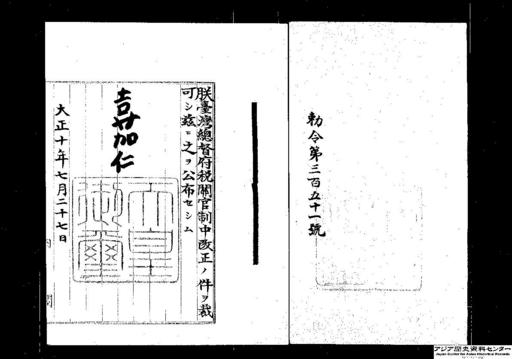 勅令第三百五十一號
朕臺灣總督府税關官制中改正ノ件ヲ裁
可シ玆ニ之ヲ公布セシム
嘉仁
天皇
御璽
大正十年七月二十七日
内閣
アジア歴史資料センター
Japan Center for Asian Historical Records